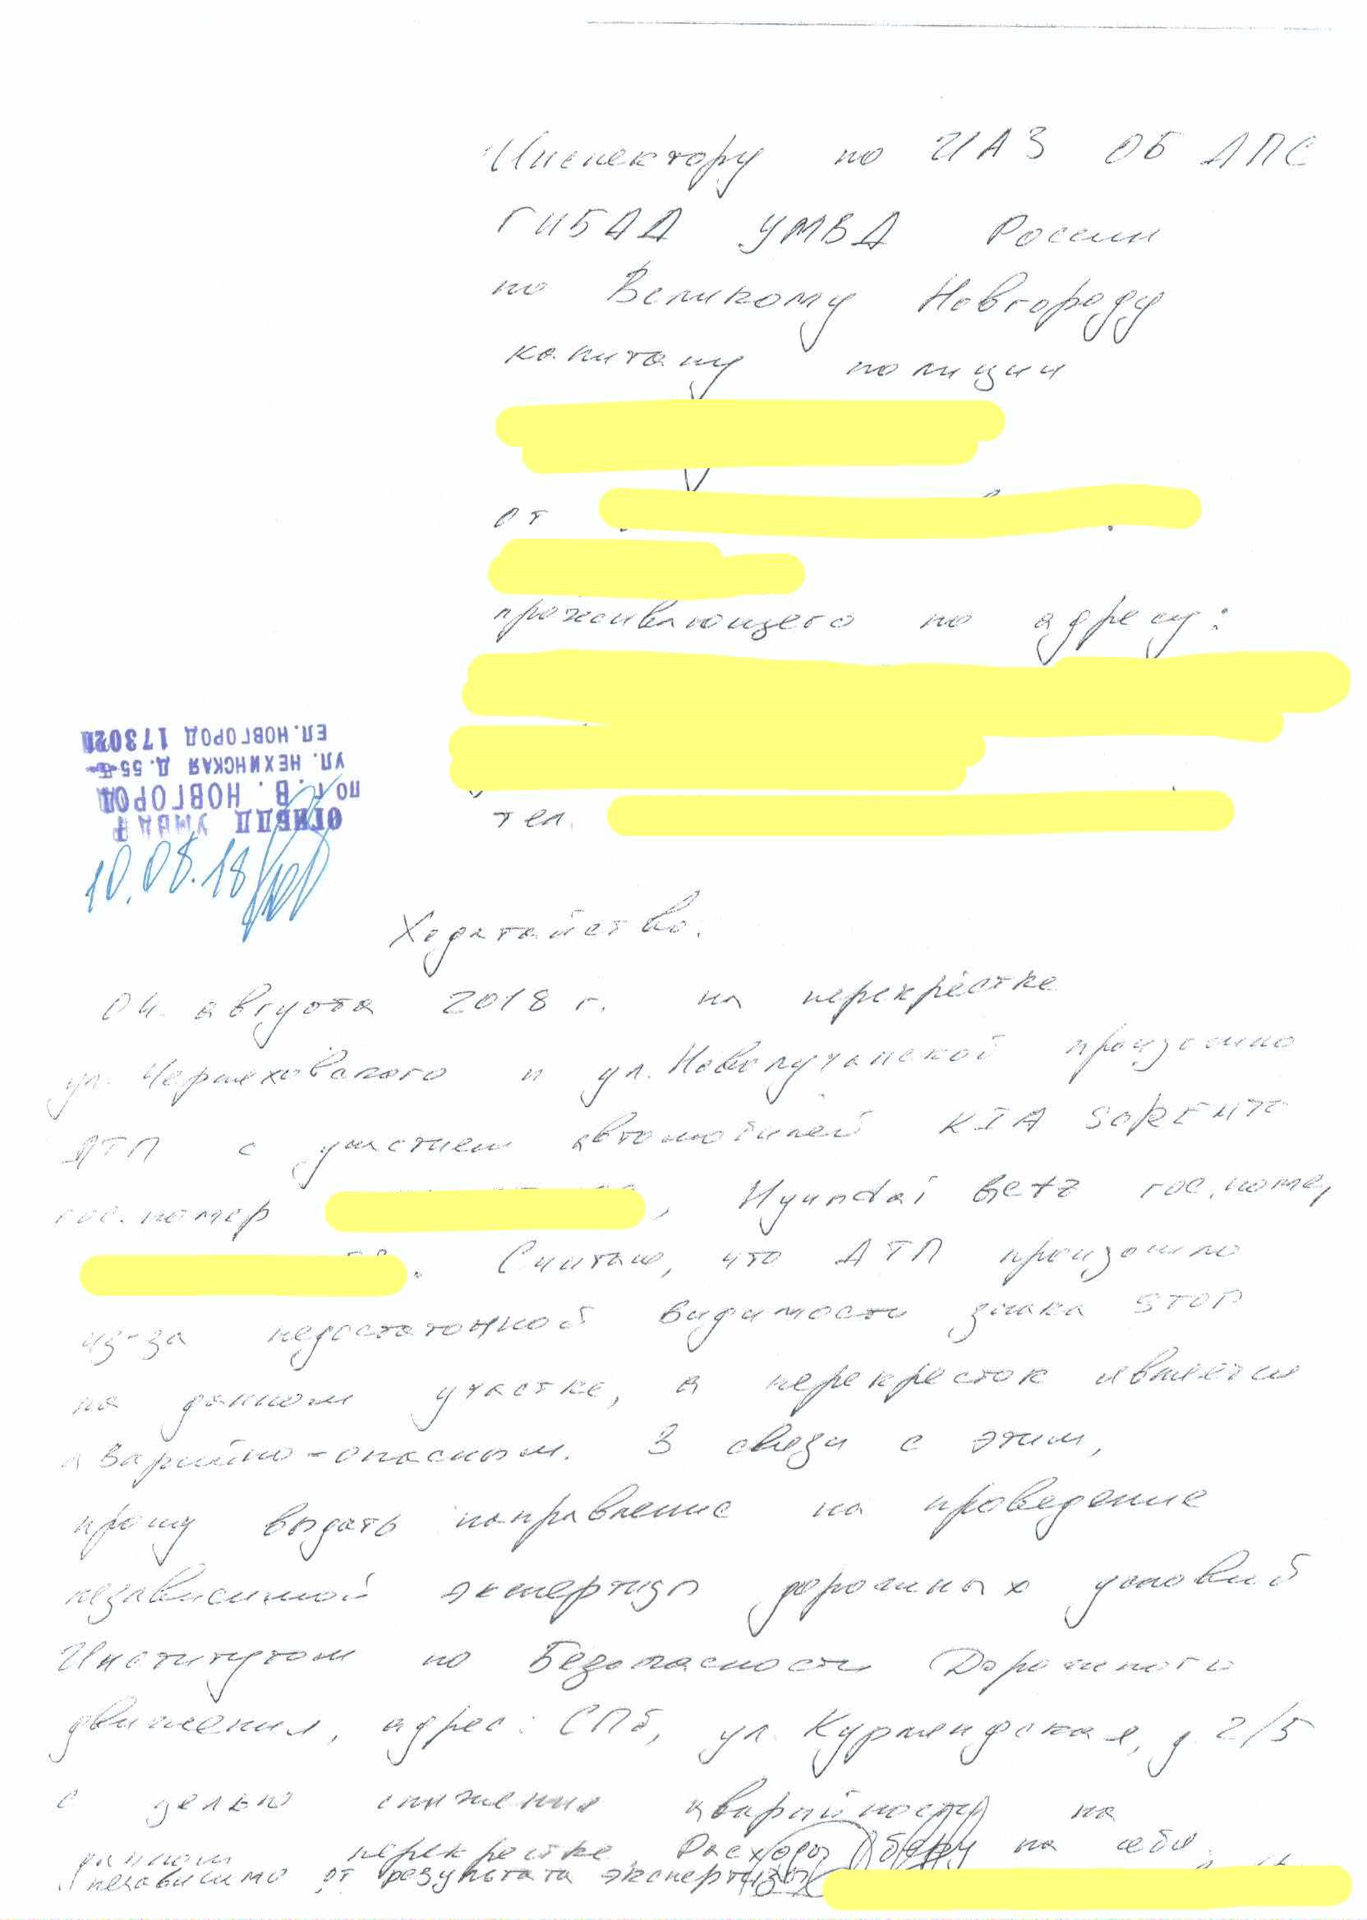 Инспектору по ИАЗ ОБ ДПС
ГИБДД УМВД России
по Великому Новгороду
капитану полиции
от
проживающего по адресу:
тел.
ЕЛ. НОВГОРОД 17302
УЛ. НЕХИНСКАЯ Д. 55
ПО Г. В. НОВГОРОД
ОГИБДД УМВД Р
10.08.18
Ходатайство.
04. августа 2018 г. на перекрёстке
ул. Черняховского и ул. Новолучанской произошло
ДТП с участием автомобилей KIA SORENTO
гос. номер , Hyundai Getz гос. номер
. Считаю, что ДТП произошло
из-за недостаточной видимости знака STOP
на данном участке, а перекресток является
аварийно-опасным. В связи с этим,
прошу выдать направление на проведение
независимой экспертизы дорожных условий
Институтом по Безопасности Дорожного
движения, адрес: СПб, ул. Курляндская, д. 2/5
с целью снижения аварийности на
данном перекрестке. Расходы беру на себя
независимо от результата экспертизы